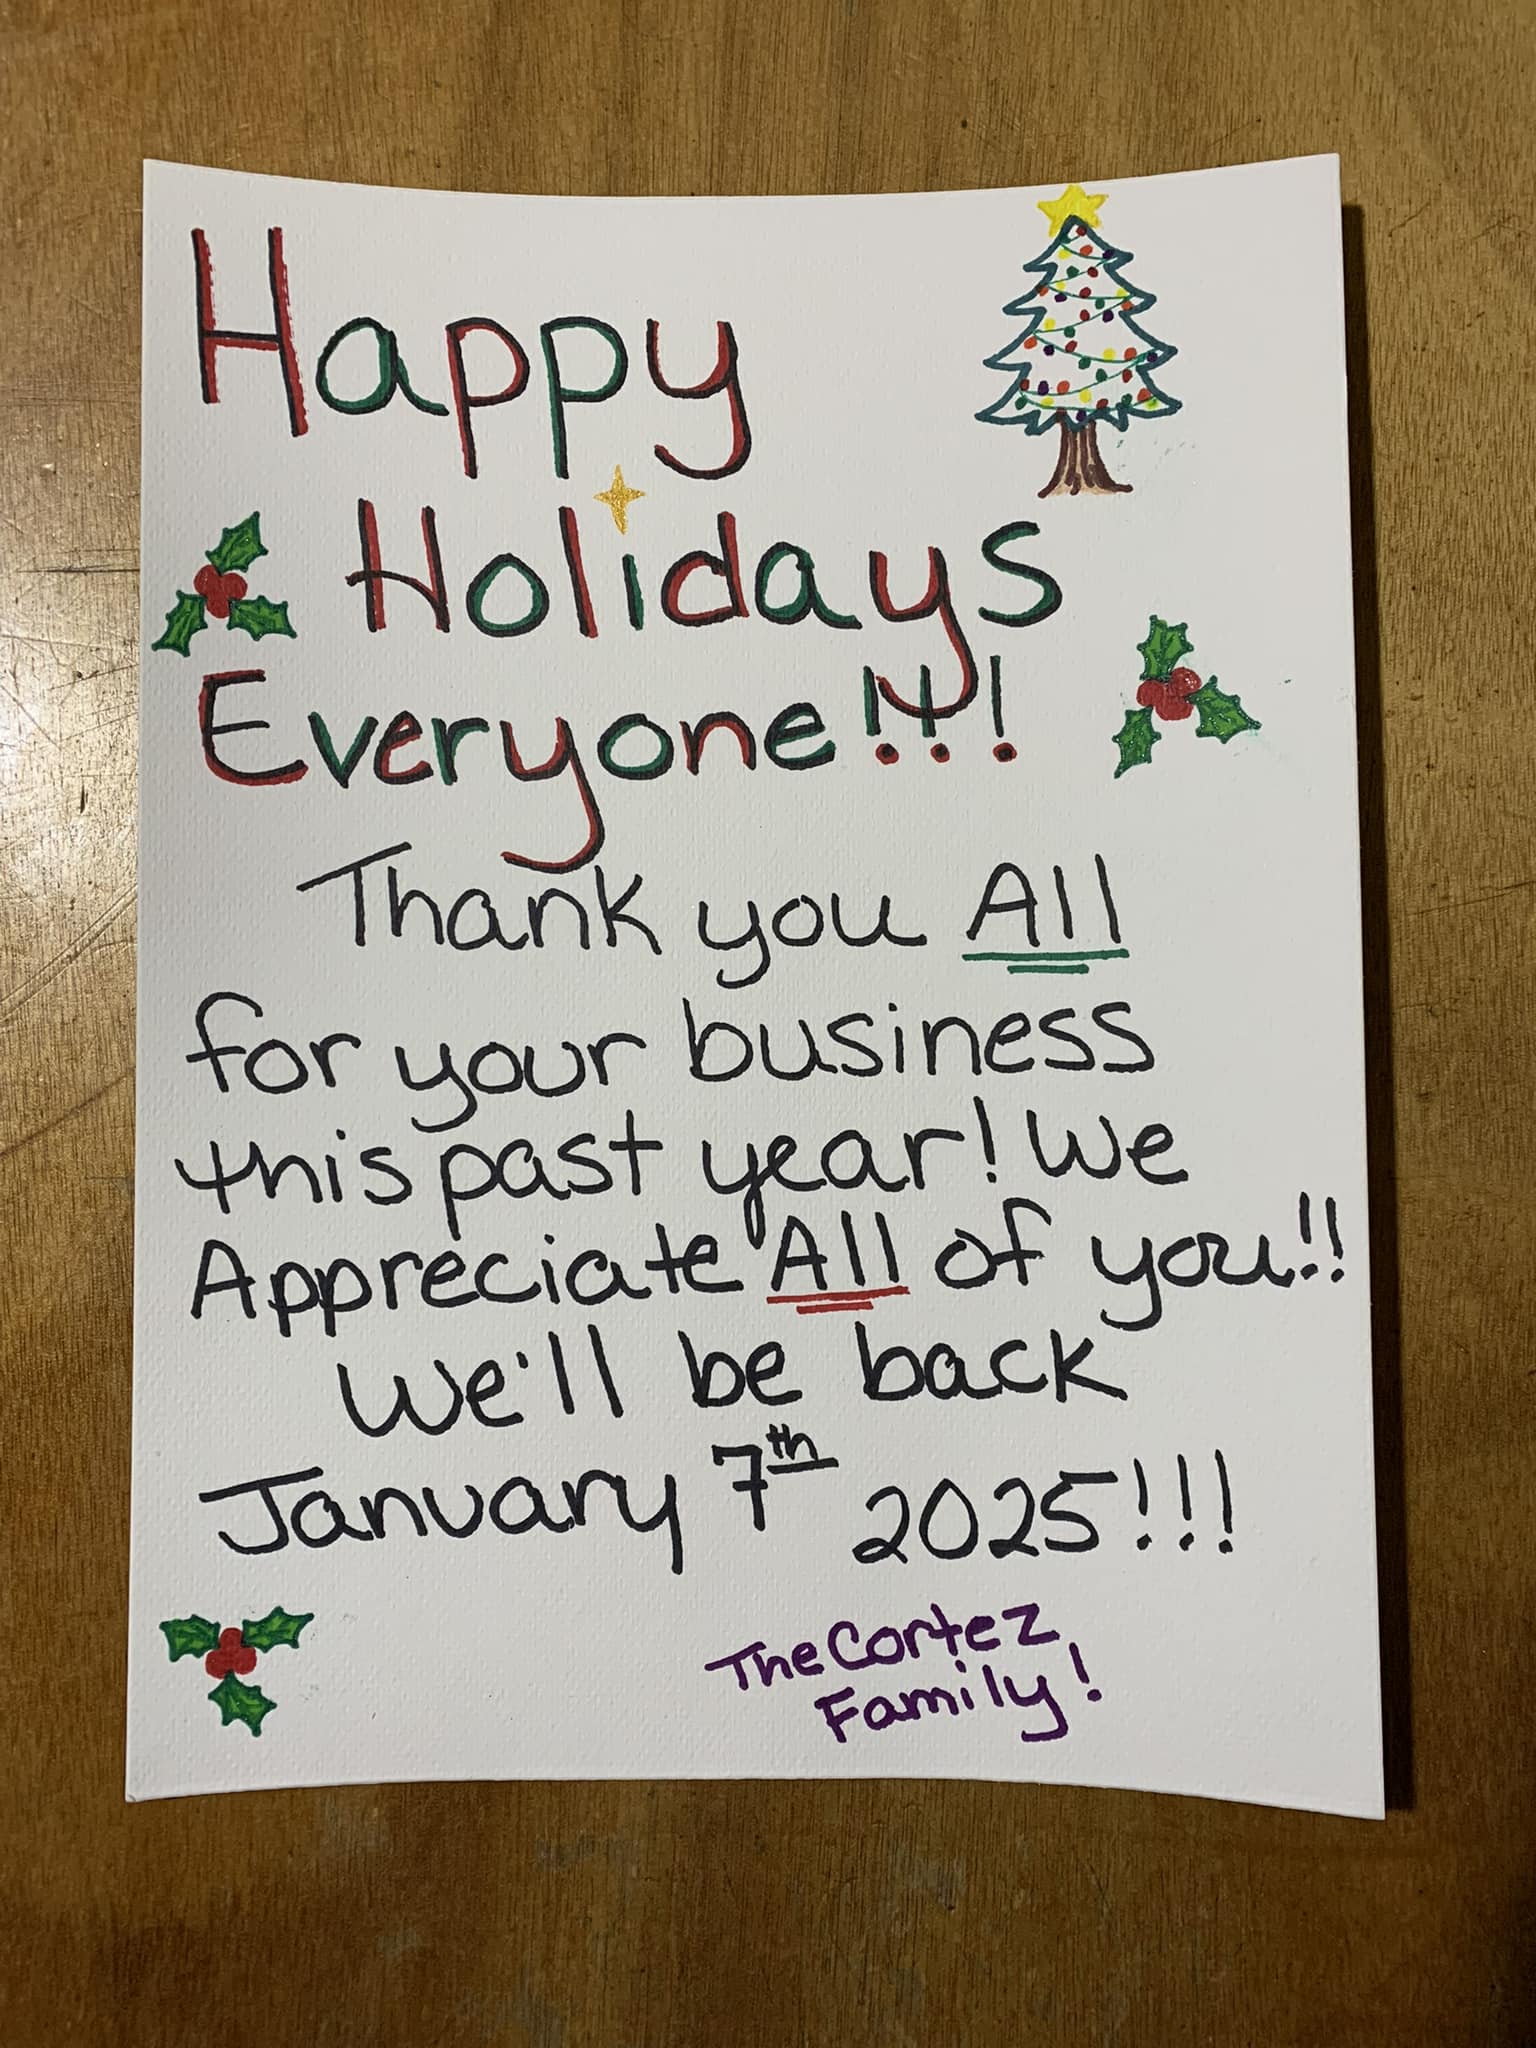 Happy
Holidays
Everyone!!!
Thank you All
for your business
this past year! We
Appreciate All of you!!
We'll be back
January 7th 2025!!!
The Cortez
Family!